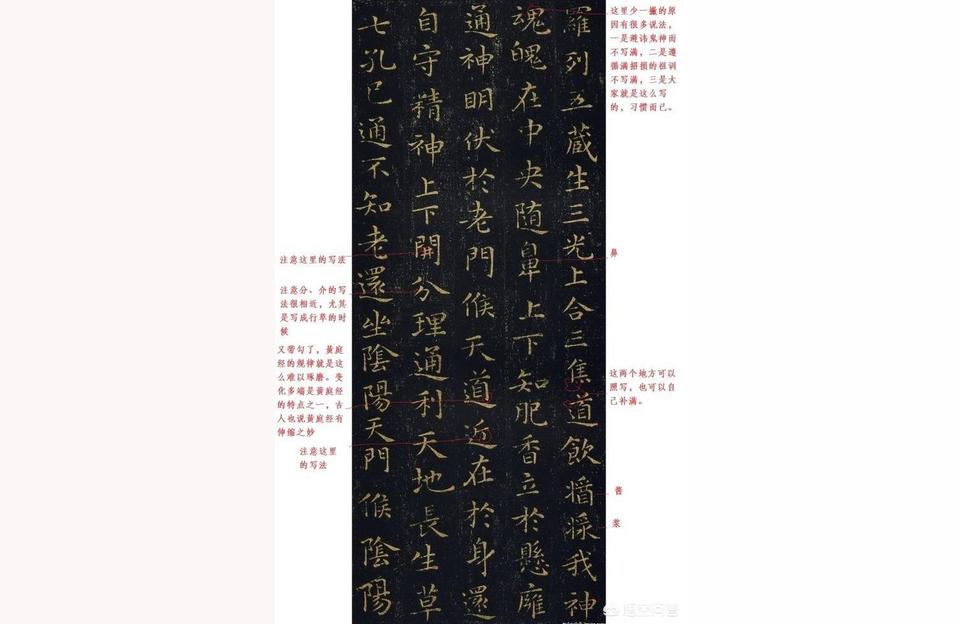 羅列五藏生三光上合三焦道飲醬漿我神
魂魄在中央随鼻上下知肥香立於懸癰
通神明伏於老門候天道近在於身還
自守精神上下開分理通利天地長生草
七孔已通不知老還坐陰陽天門候陰陽
这里少一撇的原
因有很多说法，
一是避讳鬼神而
不写满，二是遵
循满招损的祖训
不写满，三是大
家就是这么写
的，习惯而已。
鼻
这两个地方可以
照写，也可以自
己补满。
酱
浆
注意这里的写法
注意分、介的写
法很相近，尤其
是写成行草的时
候
又带勾了，黄庭
经的规律就是这
么难以琢磨。变
化多端是黄庭经
的特点之一，古
人也说黄庭经有
伸缩之妙
注意这里
的写法
悟空问答